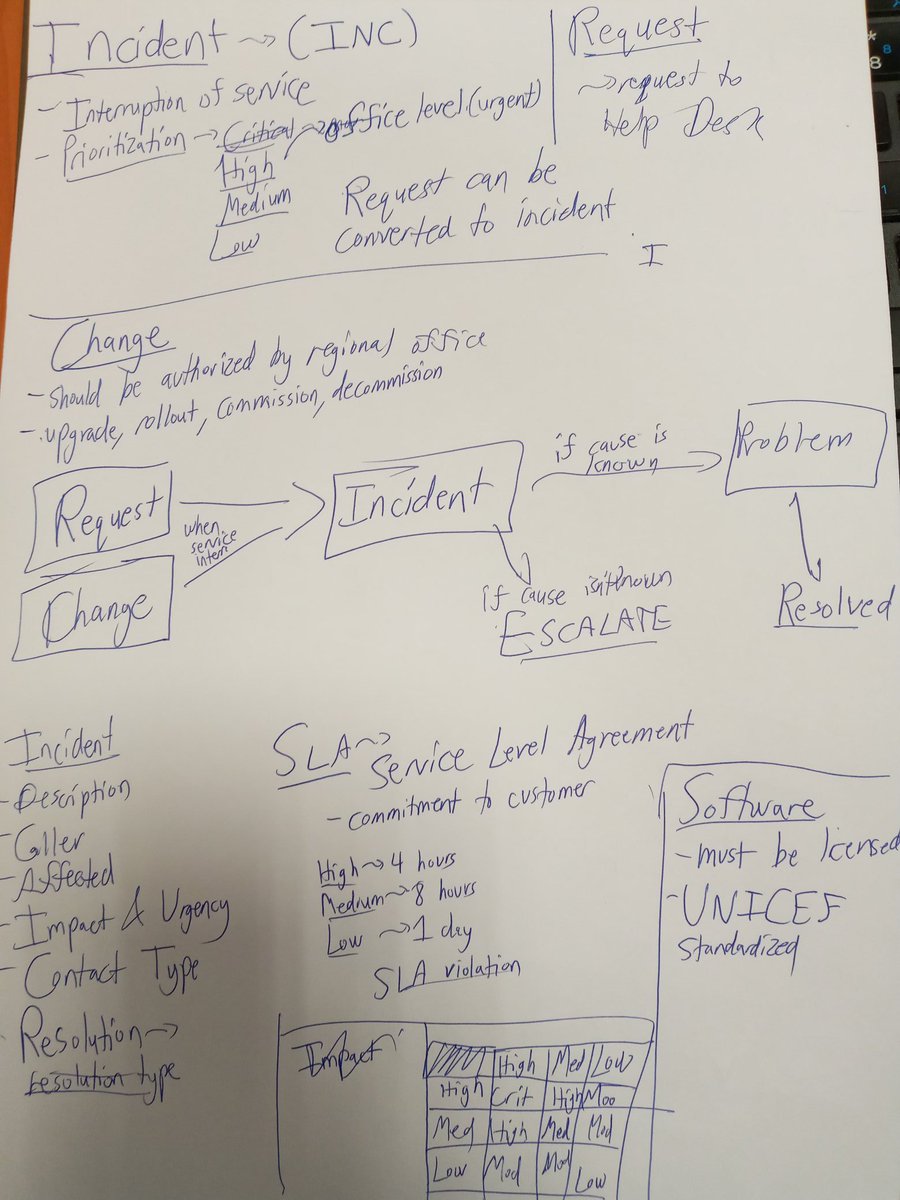 Incident ~> (INC)
- Interruption of service
- Prioritization -> Critical ~> office level (urgent)
High
Medium
Low
Request can be
converted to incident
Request
~> request to
Help Desk
I
Change
- should be authorized by regional office
- upgrade, rollout, commission, decommission
Request
Change
when
service
interr
Incident
if cause is
known
Problem
Resolved
if cause isn't known
ESCALATE
Incident
- Description
- Caller
- Affected
- Impact & Urgency
- Contact Type
Resolution ~>
resolution type
SLA ~> Service Level Agreement
- commitment to customer
High ~> 4 hours
Medium ~> 8 hours
Low ~> 1 day
SLA violation
Software
- must be licensed
- UNICEF
standardized
Impact
High Med Low
High Crit High Moo
Med High Med Mod
Low Mod Mod Low